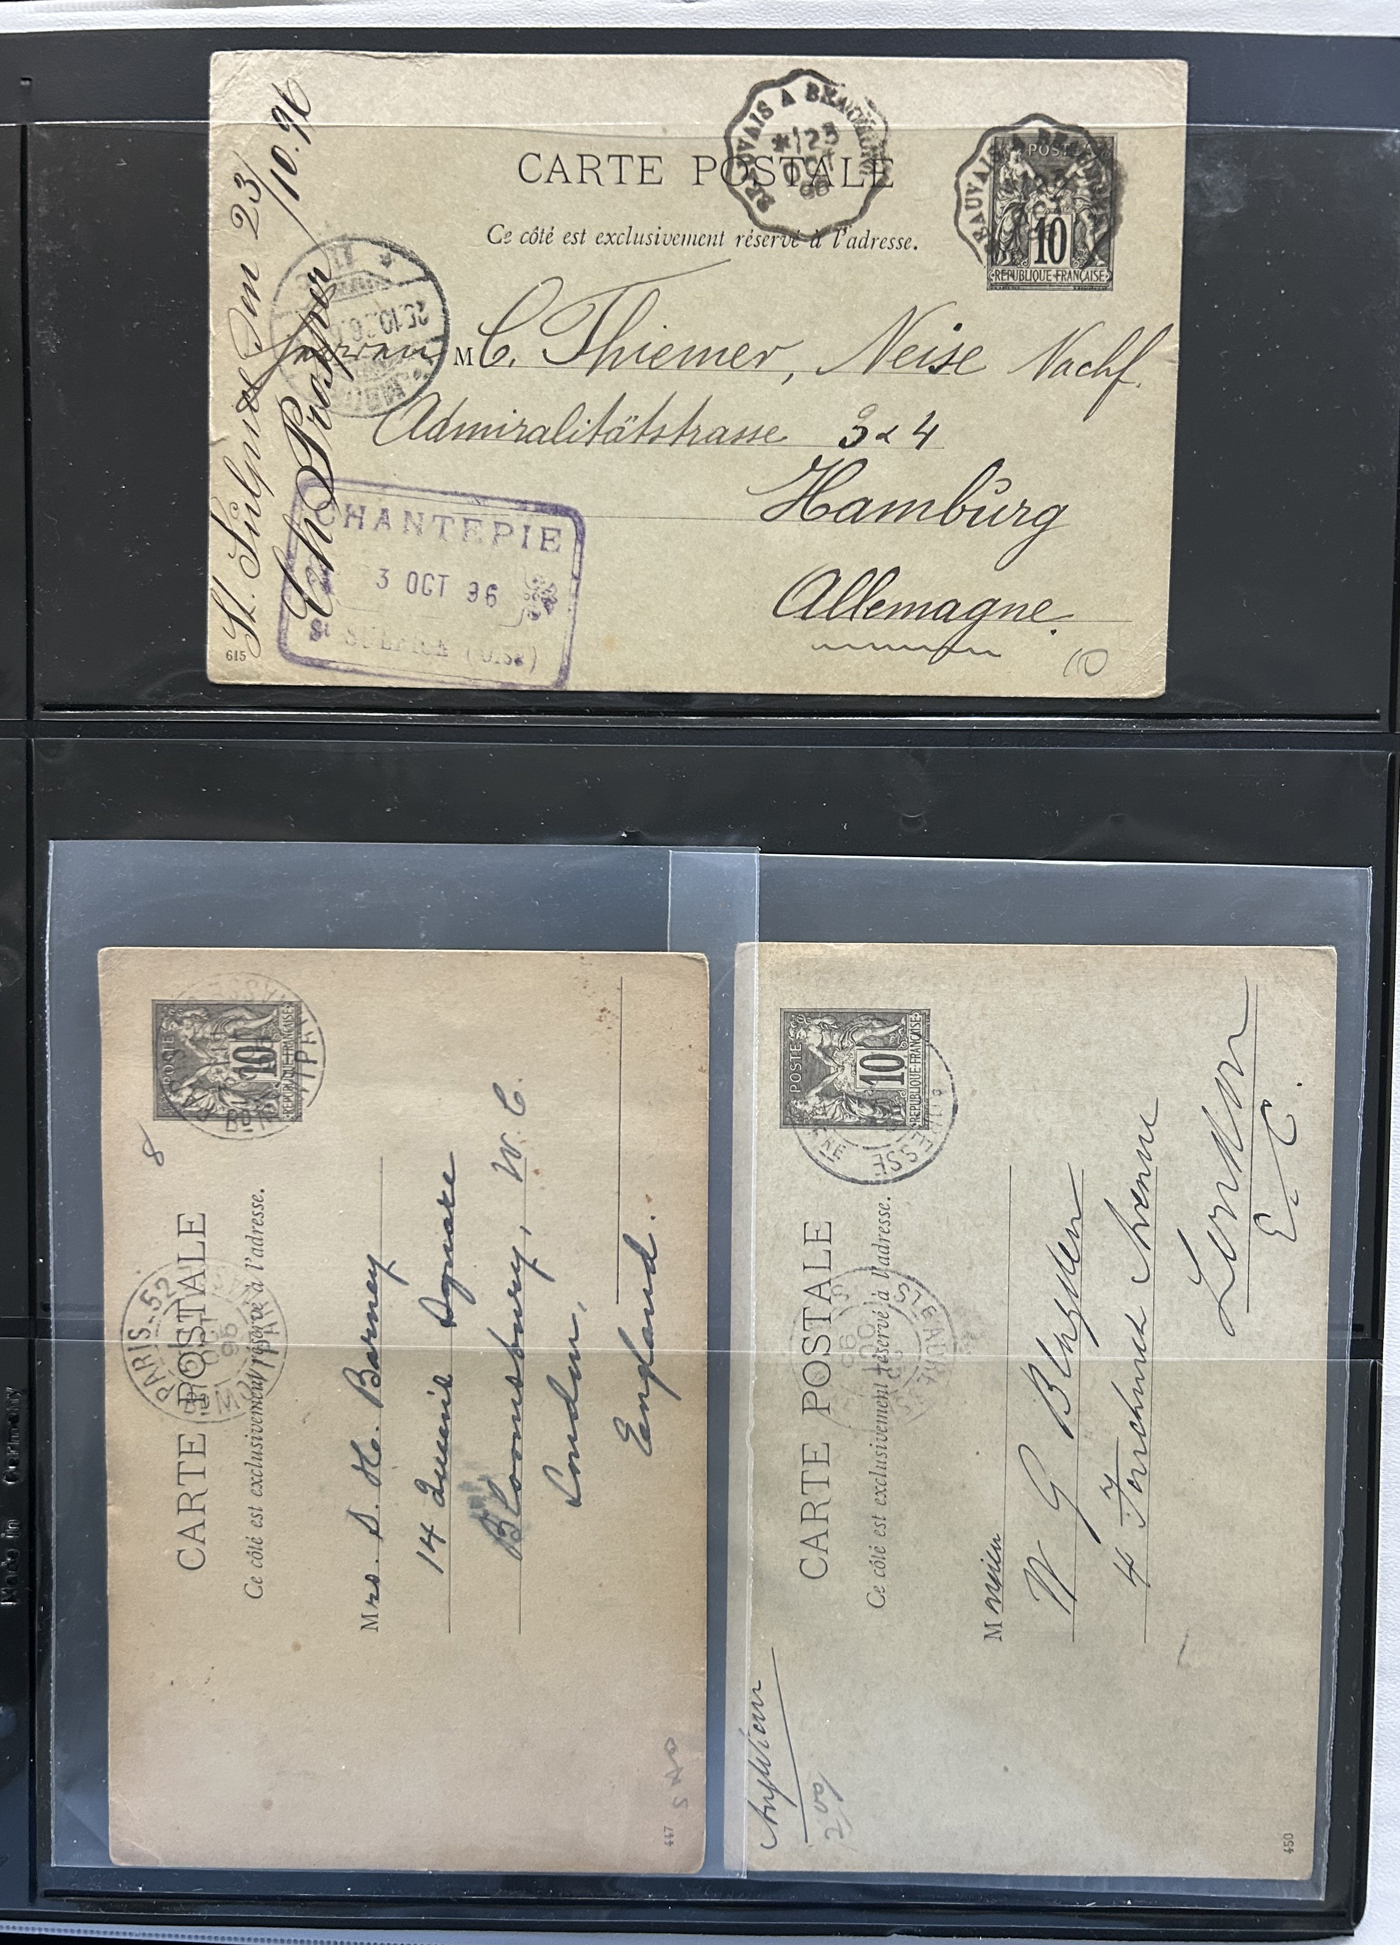 CARTE POSTALE
Ce côté est exclusivement réservé à l'adresse.
BEAUVAIS A BEAUMONT
23
OCT
96
BEAUVAIS A
POSTE
10
REPUBLIQUE FRANÇAISE
St. den 23/10.96
Ch Prosper
25.10.96
M C. Thiemer, Neise Nachf.
Admiralitätstrasse 3 & 4
Hamburg
Allemagne.
CHANTEPIE
3 OCT 96
St SULPICE (OISE)
615
10
POSTES
10
REPUBLIQUE FRANÇAISE
8
PARIS-52
96
CARTE POSTALE
Ce côté est exclusivement réservé à l'adresse.
Mrs. S. H. Barney
14 Square
Bloomsbury, W. C.
London,
England.
447
POSTES
10
REPUBLIQUE FRANÇAISE
CARTE POSTALE
Ce côté est exclusivement réservé à l'adresse.
96
M
W G
4 Avenue
London
E. C.
450
Made in Germany